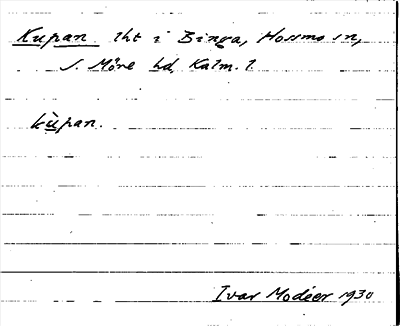 Kupan lht i Binga, Hossmo sn,
S. Möre hd, Kalm. l.
kùpan.
Ivar Modéer 1930